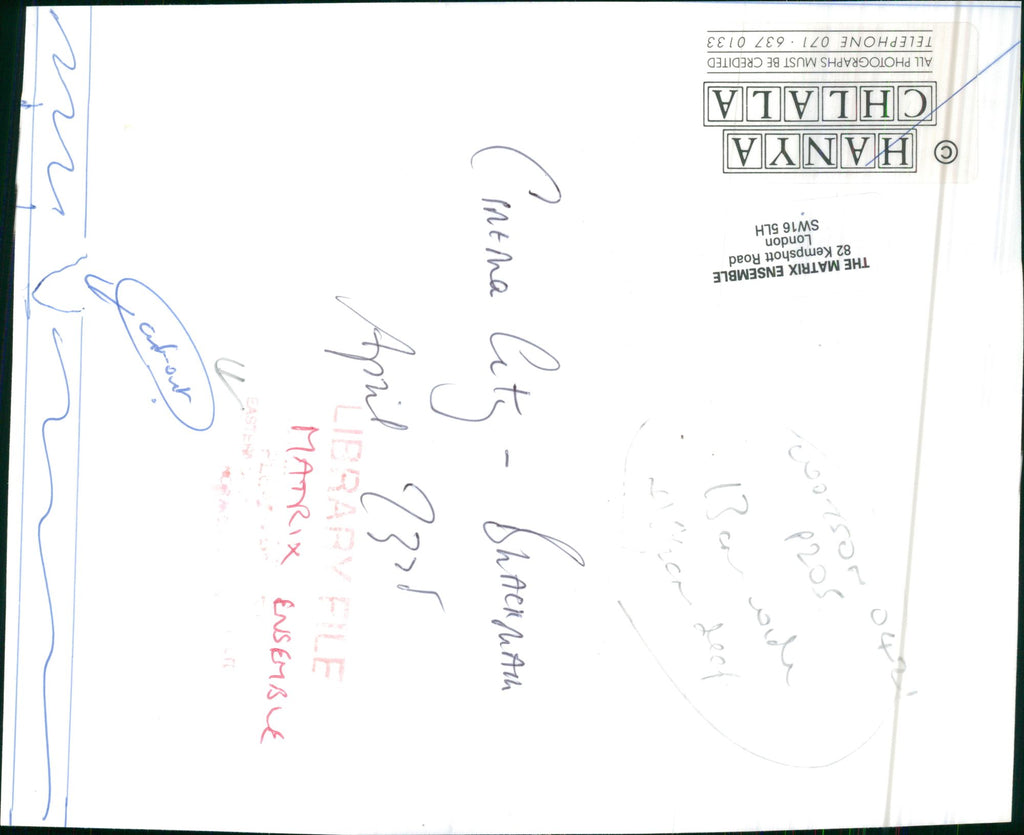 © HANYA
CHLALA
ALL PHOTOGRAPHS MUST BE CREDITED
TELEPHONE 071 · 637 0133
THE MATRIX ENSEMBLE
82 Kempshott Road
London
SW16 5LH
Cinema City - BLACKHAM
April 23rd
LIBRARY FILE
MATRIX ENSEMBLE
EASTERN
cut-out
P205
13 cm wide
cm deep